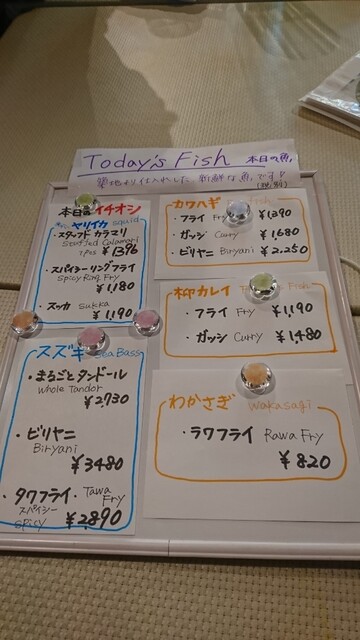 Today's Fish 本日の魚
築地より仕入れした、新鮮な魚です!
(税別)
本日のイチオシ
ヤリイカ squid
・スタッフド カラマリ
Stuffed Calamari
1pcs ¥1390
・スパイシーリングフライ
Spicy Ring Fry
¥1,180
・スッカ Sukka
¥1,190
スズキ Sea Bass
・まるごとタンドール
Whole Tandor
¥2730
・ビリヤニ
Biryani
¥3480
・タワフライ・Tawa Fry
スパイシー
spicy ¥2,890
カワハギ Fish
・フライ Fry ¥1,390
・ガッシ Curry ¥1,680
・ビリヤニ Biryani ¥2,250
柳カレイ Fish
・フライ Fry ¥1,190
・ガッシ Curry ¥1,480
わかさぎ Wakasagi
・ラワフライ Rawa Fry
¥820